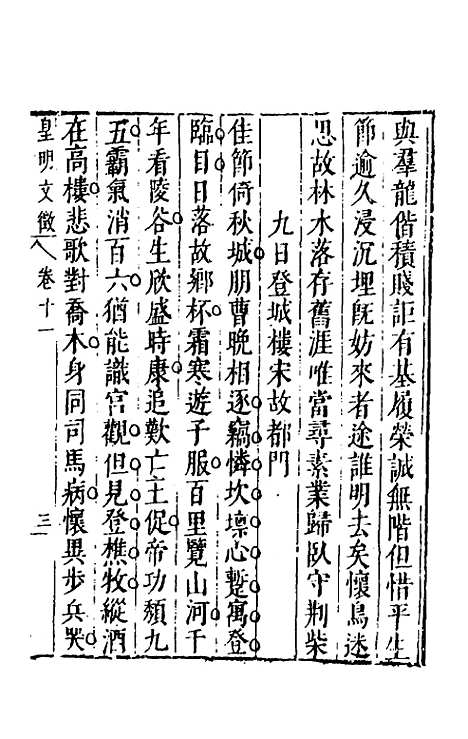 與羣龍偕積賤詎有基履榮誠無階但惜平生
節逾久浸沉埋旣妨來者途誰明去矣懷鳥迷
思故林木落存舊涯唯當尋素業歸臥守荆柴
九日登城樓宋故都門
佳節倚秋城朋曹晚相逐竊憐坎壈心蹔寓登
臨目日落故鄉杯霜寒遊子服百里覽山河千
年看陵谷生欣盛時康追歎亡主促帝功頽九
五霸氣消百六猶能識宮觀但見登樵牧縱酒
在高樓悲歌對喬木身同司馬病懷異步兵哭
皇明文徵 卷十一 三